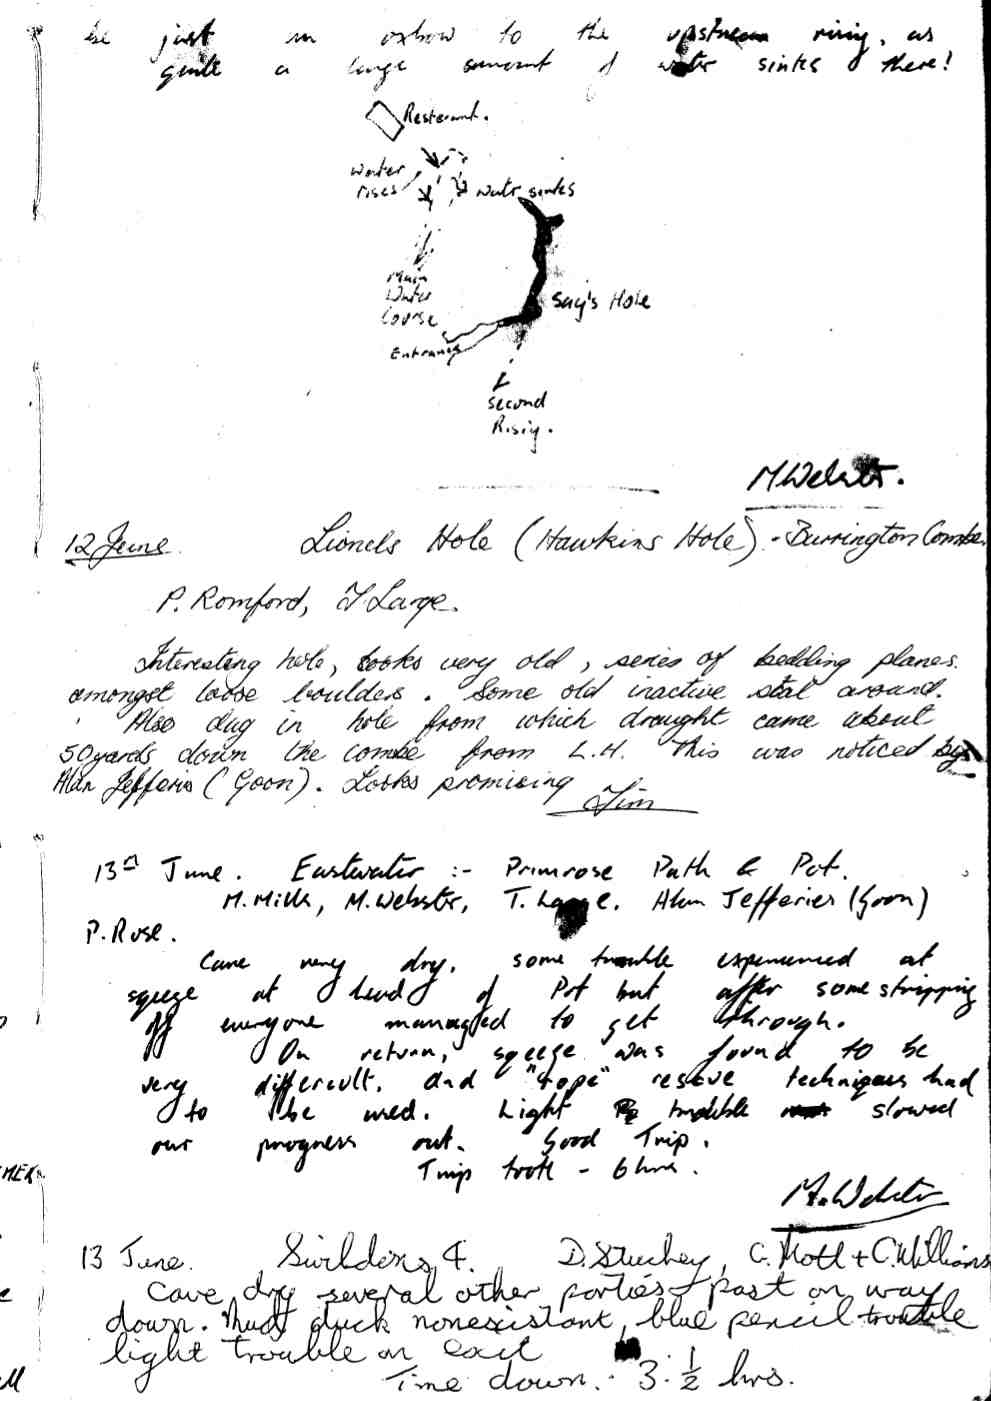 be just an oxbow to the upstream rising, as
quite a large amount of water sinks there!
Resterant.
Water
rises
Watr sinks
Main
Water
Course
Say's Hole
Entrance
Second
Rising.
M Webster.
12 June. Lionels Hole (Hawkins Hole) - Burrington Combe.
P. Romford, T Large.
Interesting hole, looks very old, series of bedding planes
amongst loose boulders. Some old inactive stal around.
Also dug in hole from which draught came about
50 yards down the combe from L.H. This was noticed by
Alan Jefferies (Goon). Looks promising
Tim
13th June. Eastwater :- Primrose Path & Pot.
M. Mills, M. Webster, T. Large. Alan Jefferies (Goon)
P. Rose.
Cave very dry. some trouble experienced at
sqeeze at head of Pot but after some stripping
off everyone managed to get through.
On return, sqeeze was found to be
very differcult. and "rope" rescue techniques had
to be used. Light trouble slowed
our progress out. Good Trip.
Trip took - 6 hrs.
M. Webster
13 June. Swildons 4. D. Stuckey, C. Mott + C. Williams
Cave dry several other parties past on way
down. Mud duck nonexistant, blue pencil trouble
light trouble on exit
Time down. - 3. 1/2 hrs.
MER